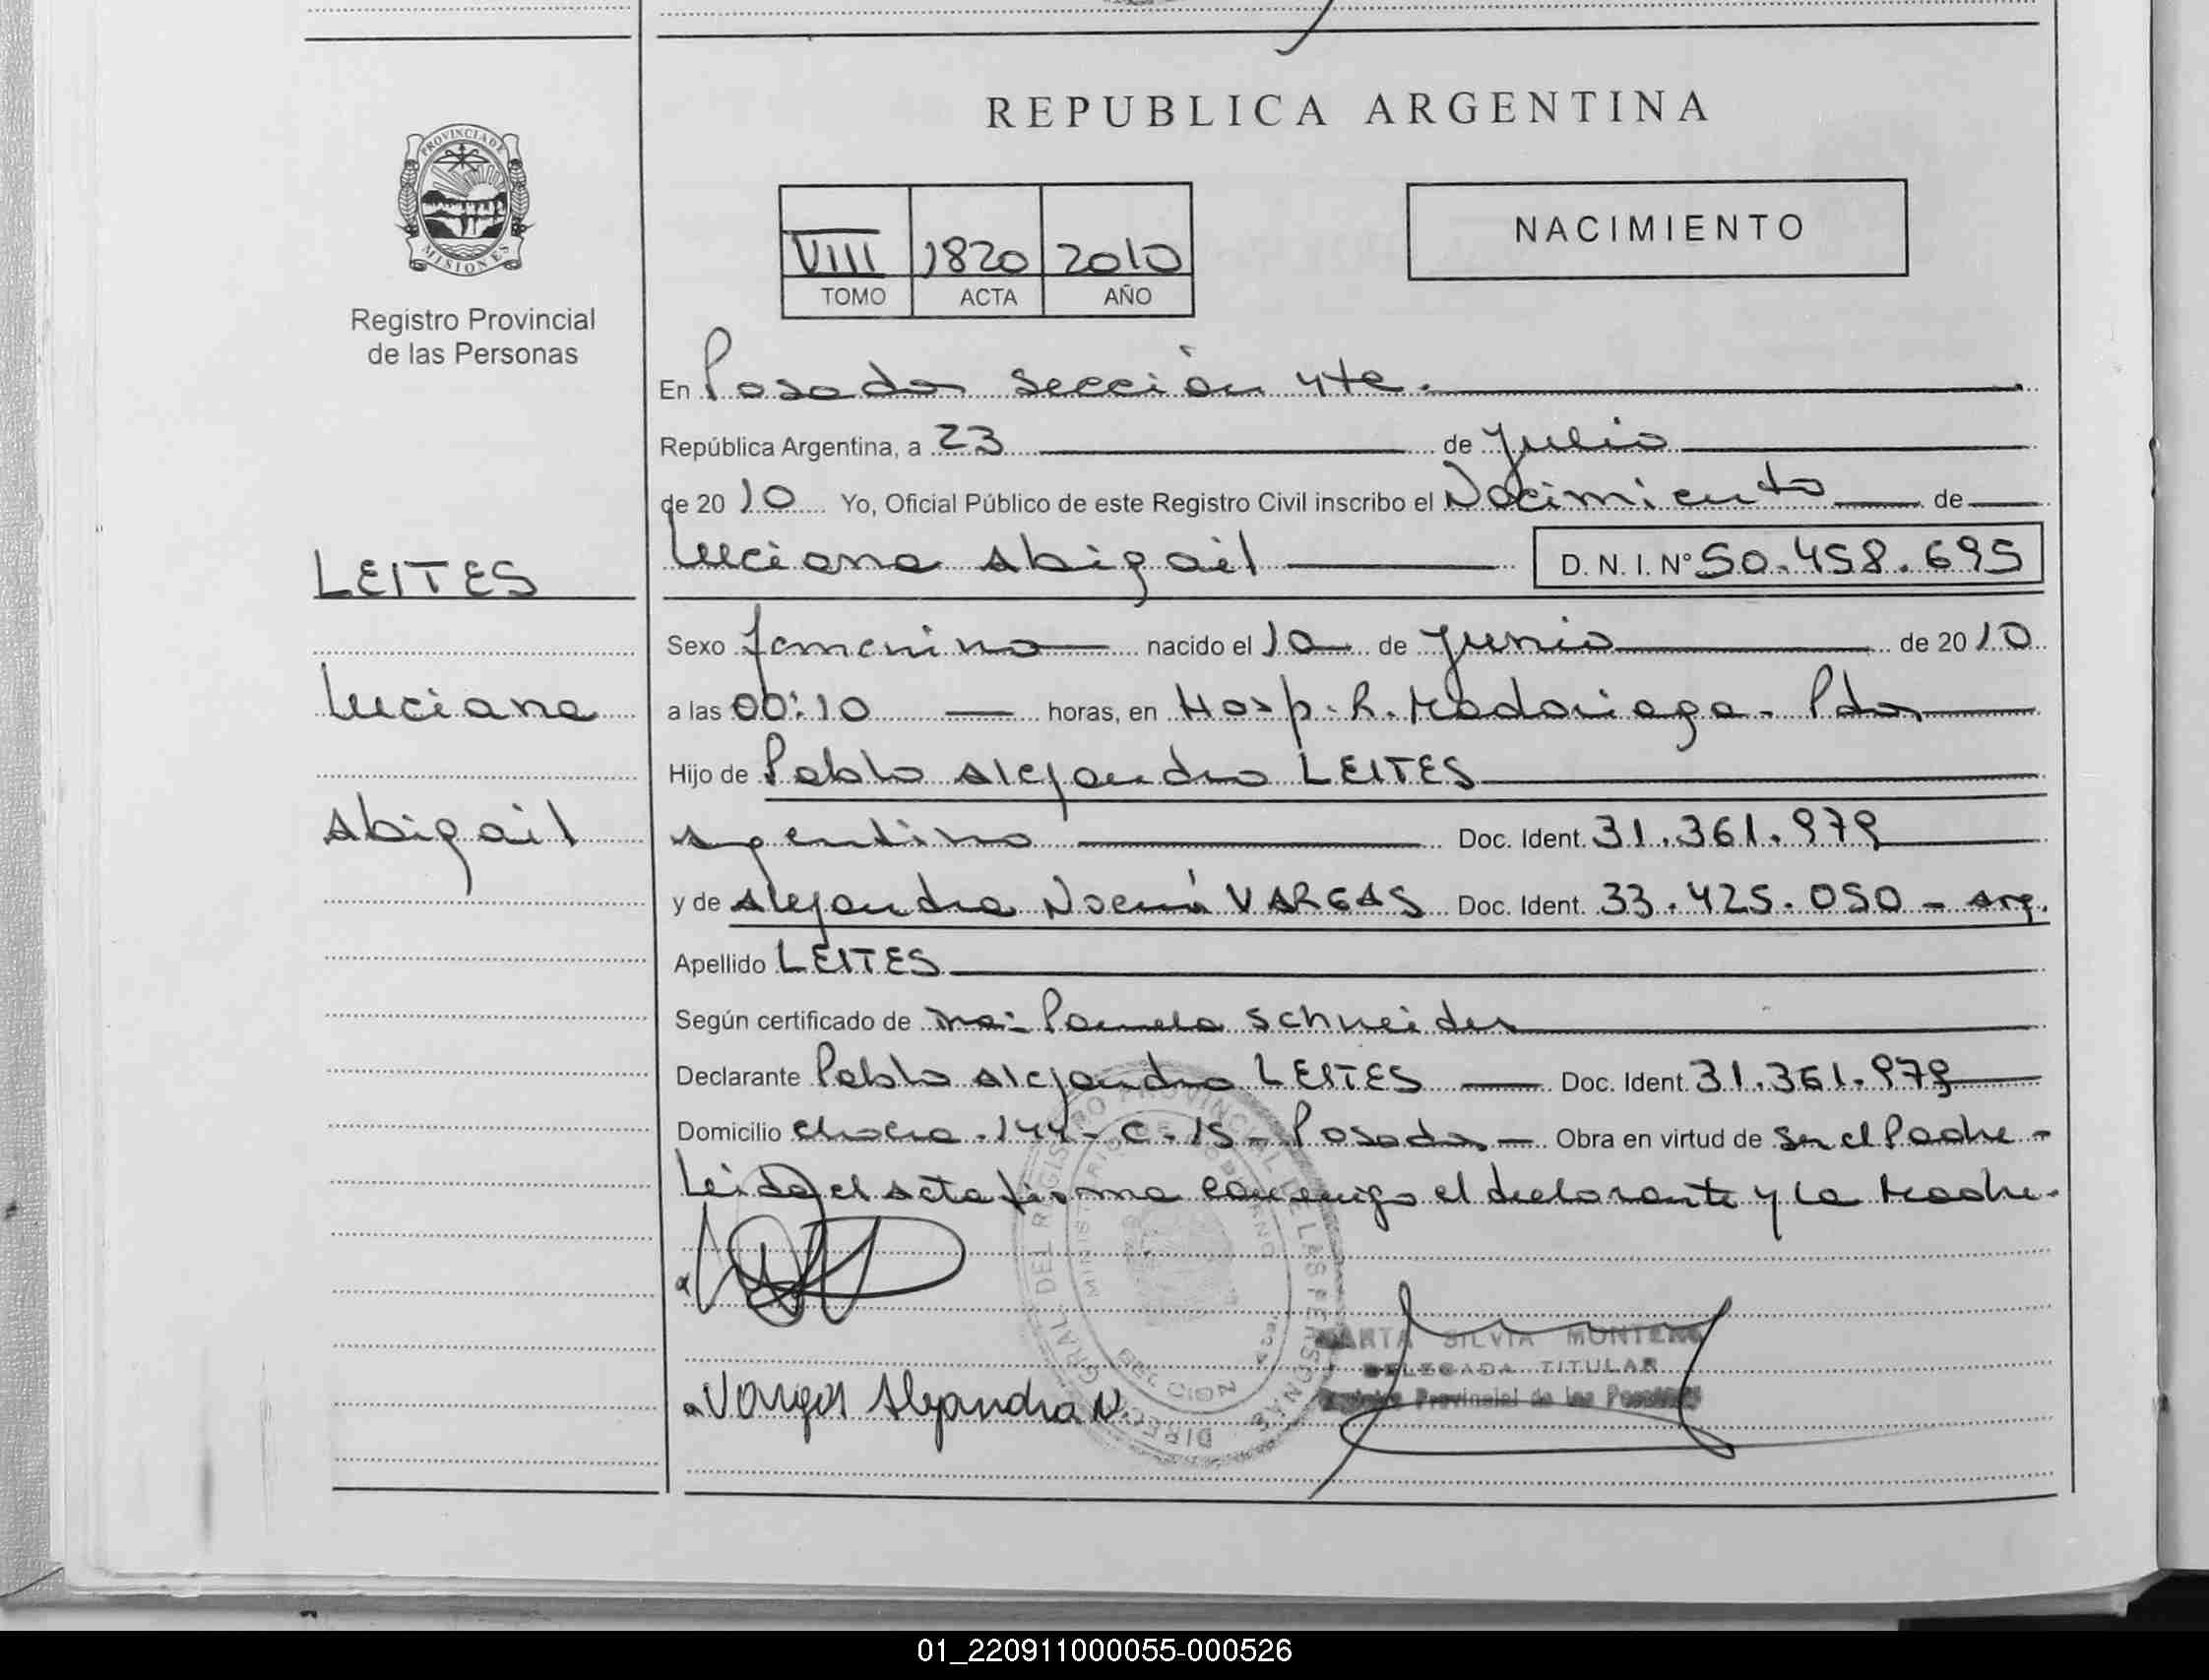 REPUBLICA ARGENTINA
PROVINCIA DE
MISIONES
Registro Provincial
de las Personas
VIII 1820 2010
TOMO ACTA AÑO
NACIMIENTO
En Posadas sección 4ta.
República Argentina, a 23 de Julio
de 2010 Yo, Oficial Público de este Registro Civil inscribo el Nacimiento de
Luciana Abigail D. N. I. Nº 50.458.695
LEITES
Luciana
Abigail
Sexo femenino nacido el 10 de Junio de 2010
a las 00:10 horas, en Hosp. R. Madariaga - Pdas
Hijo de Pablo Alejandro LEITES
argentino Doc. Ident. 31.361.979
y de Alejandra Noemí VARGAS Doc. Ident. 33.425.050 - arg.
Apellido LEITES
Según certificado de Pamela Schneider
Declarante Pablo Alejandro LEITES Doc. Ident. 31.361.979
Domicilio chacra. 144 - C. 15 - Posadas - Obra en virtud de ser el Padre -
Leida el acta firma conmigo el declarante y la Madre.
Vargas Alejandra N.
DIREC GRAL. DEL REGISTRO PROVINCIAL DE LAS PERSONAS
MINISTERIO DE GOBIERNO
MARTA SILVIA MONTERO
DELEGADA TITULAR
Registro Provincial de las Personas
01_220911000055-000526